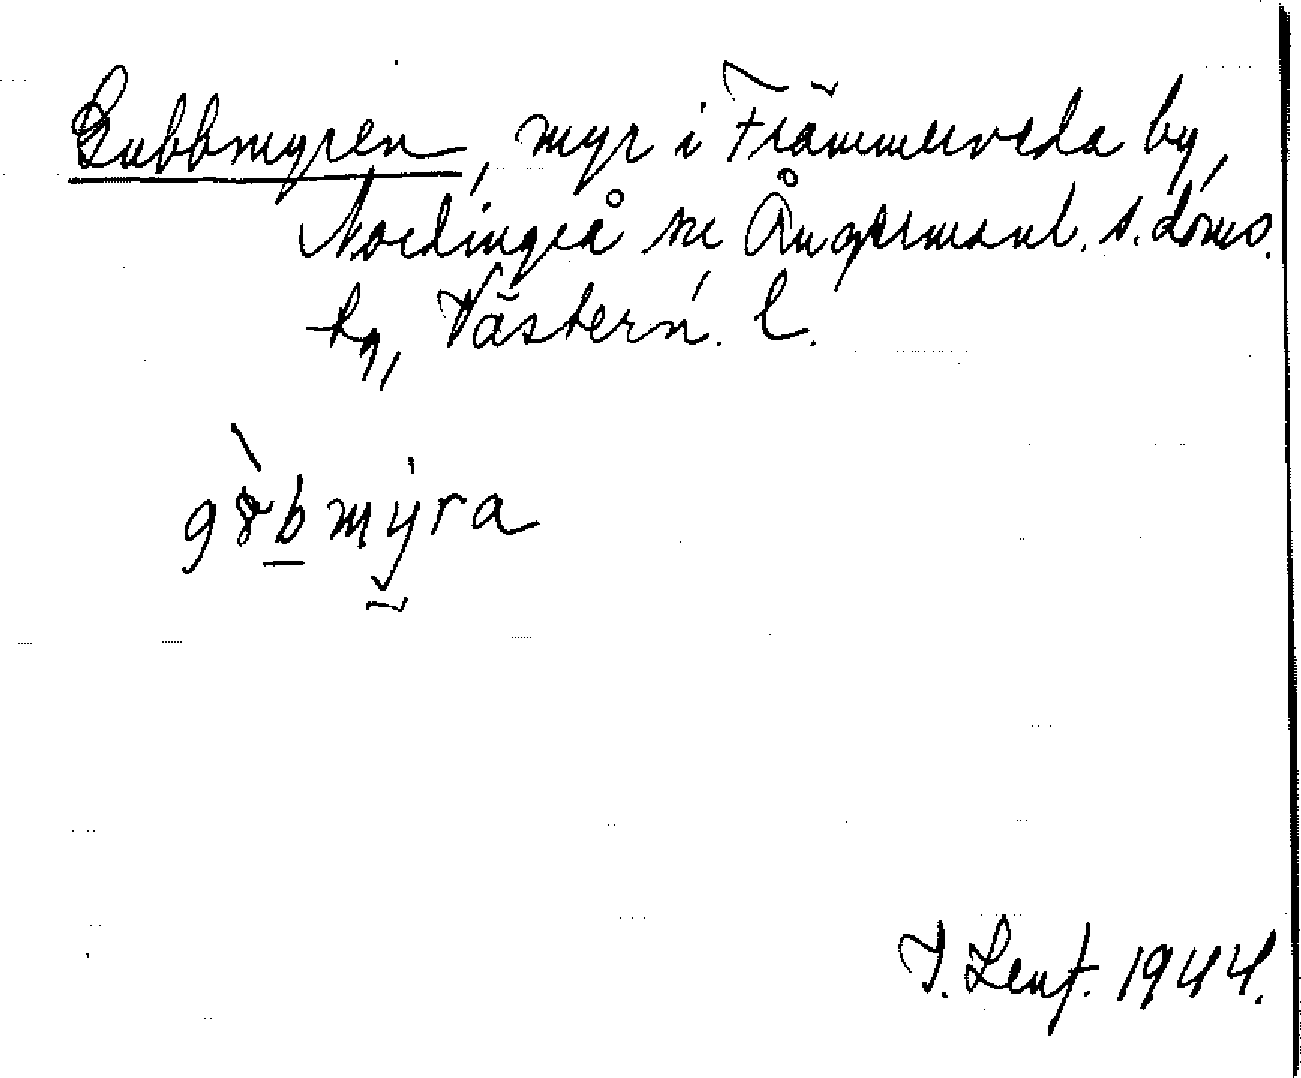 Gubbmyren, myr i Främmerveda by,
Nordingrå sn Ångermanl. s. doms.
hg, Västern. l.
gɤ̀bmẏra
I. Lenf. 1944.